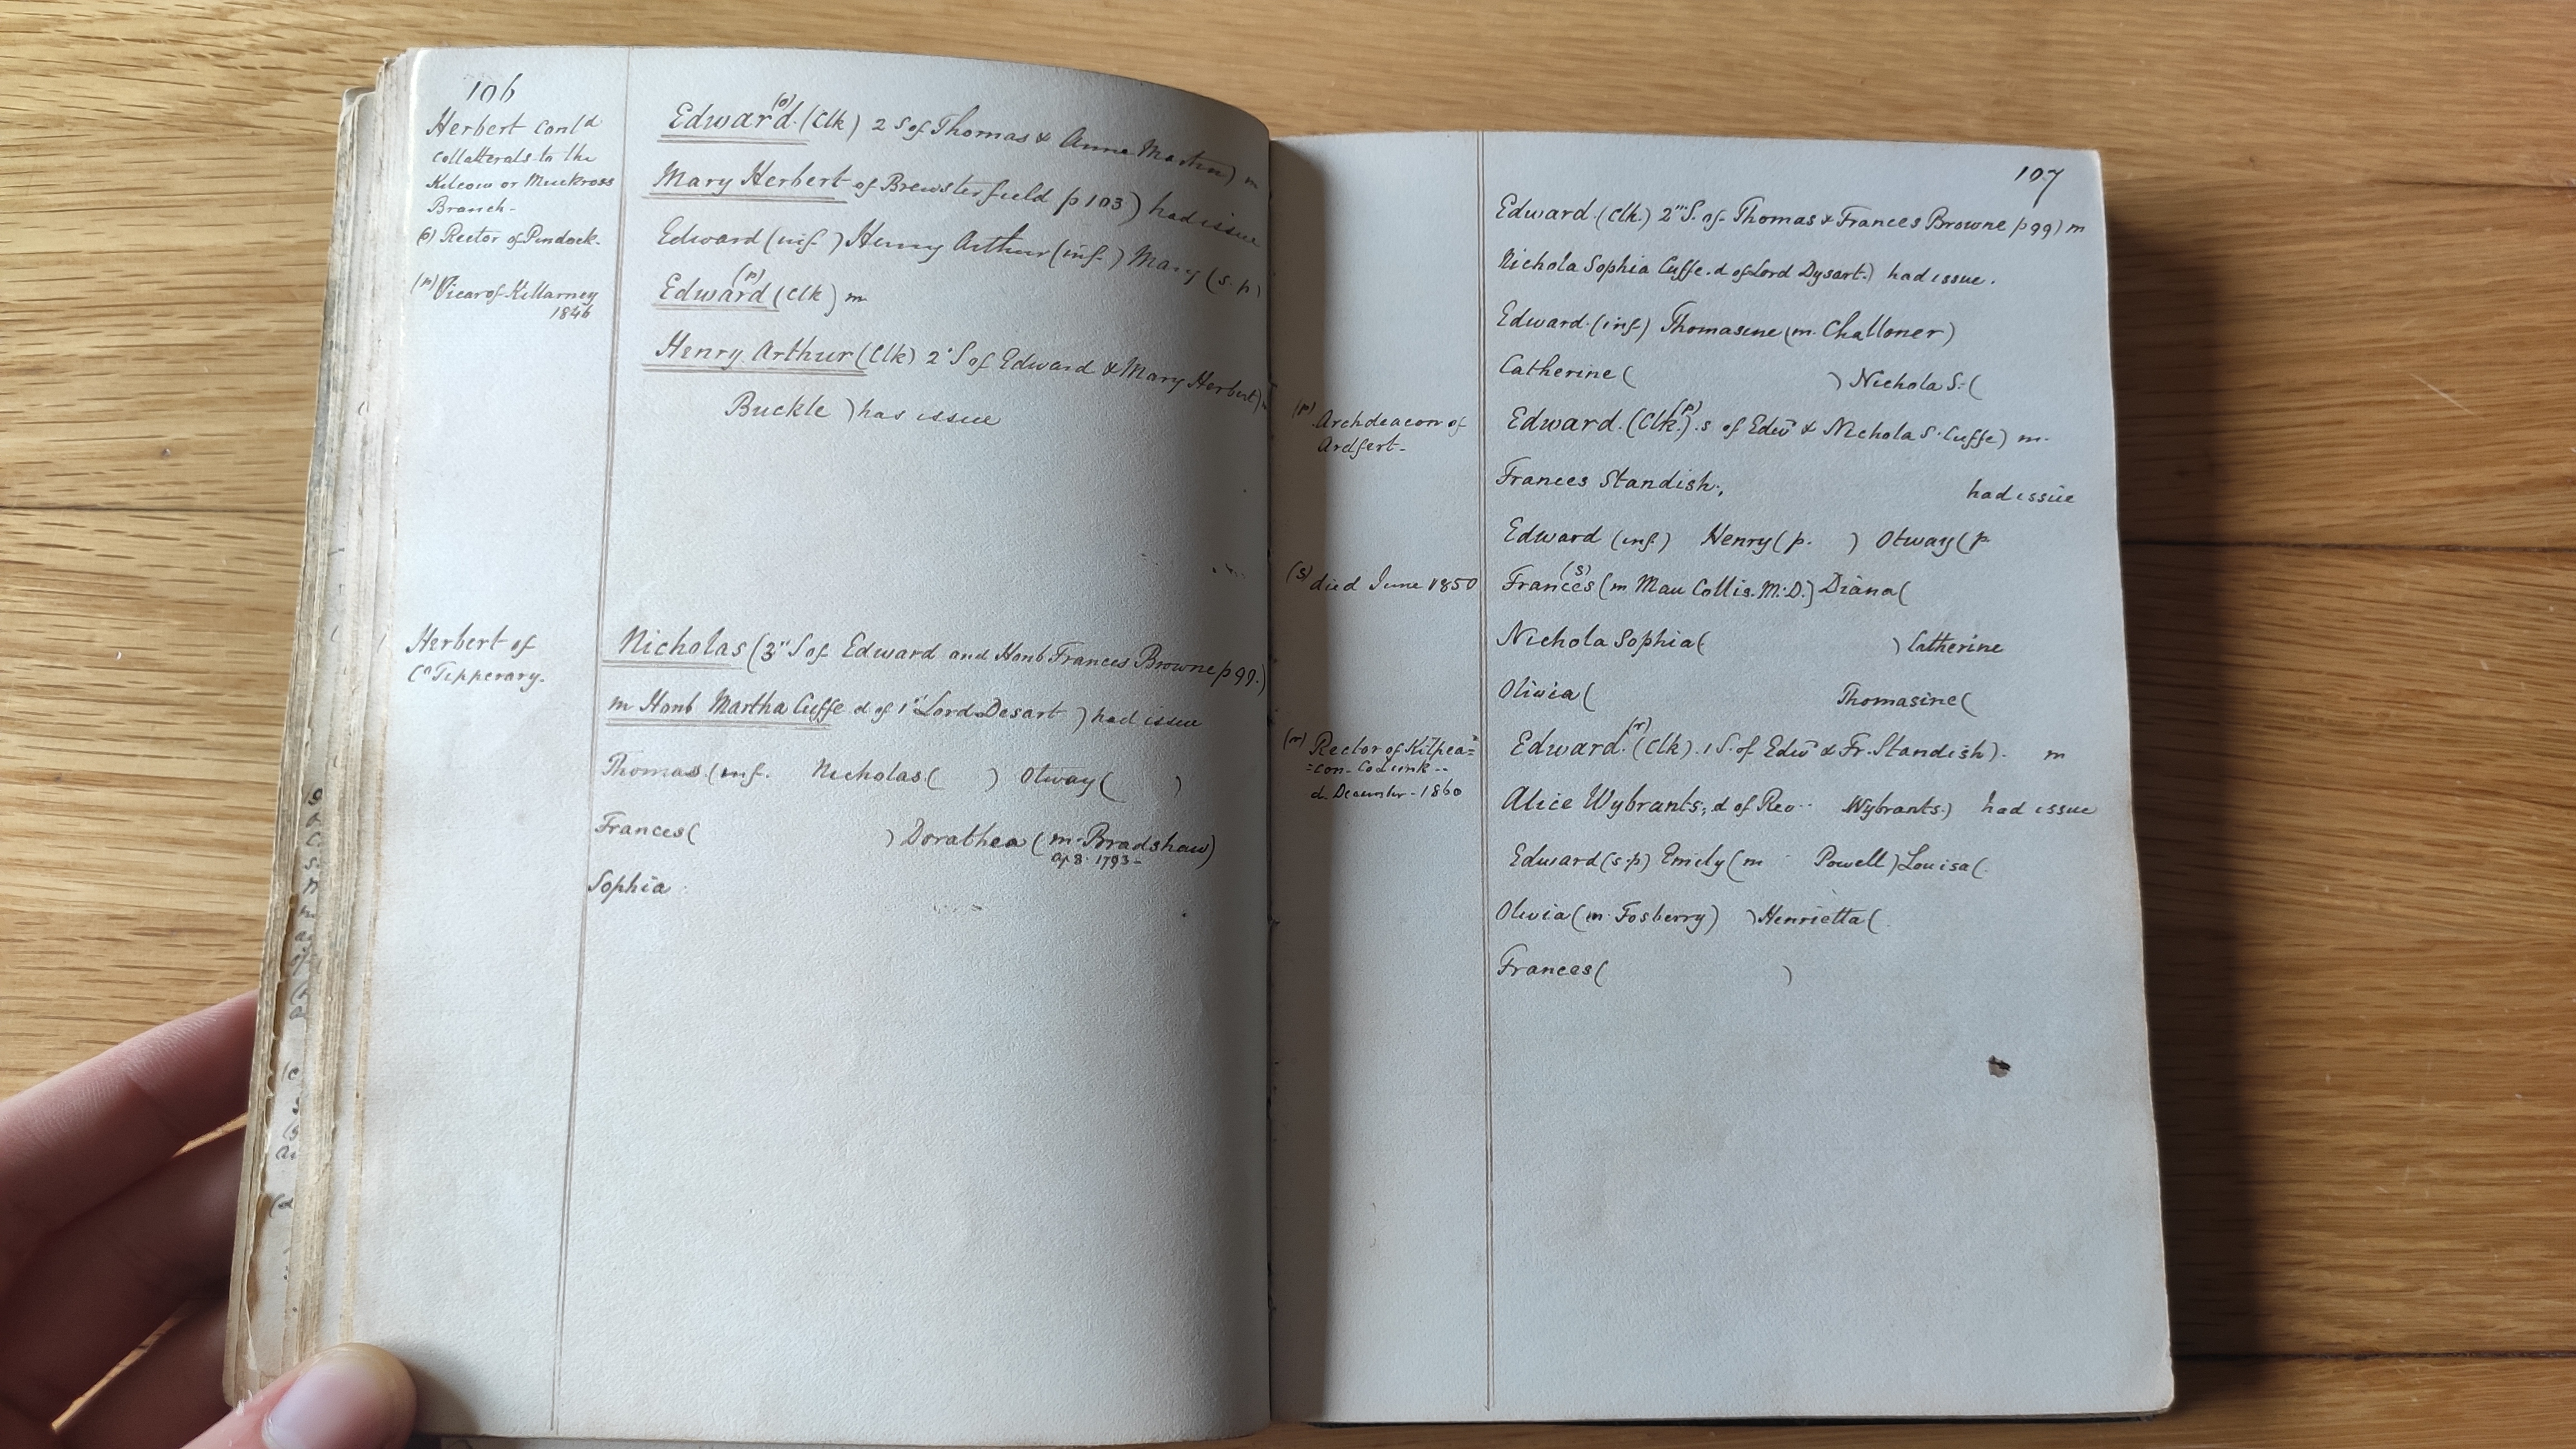 106
Herbert Cont'd
Collatterals to the
Kilcow or Muckross
Branch-
(o) Rector of Pendock.
(p) Vicar of Killarney
1846
Edward (o) (Clk) 2 S of Thomas & Anne Martin) m
Mary Herbert of Brewsterfield p 103) had issue
Edward (inf.) Henry Arthur (inf.) Mary (s.p)
Edward (p) (Clk) m
Henry Arthur (Clk) 2d S of Edward & Mary Herbert) m
Buckle ) has issue
Herbert of
Co Tipperary.
Nicholas (3" S of Edward and Honb Frances Browne p 99.)
m Honb Martha Cuffe d of 1" Lord Desart ) had issue
Thomas (inf. Nicholas ( ) Otway ( )
Frances ( ) Dorathea (m. Bradshaw)
ap 8. 1793-
Sophia
107
Edward. (Clk.) 2" S. of Thomas & Frances Browne p 99) m
Nichola Sophia Cuffe. d of Lord Dysart.) had issue.
Edward. (inf.) Thomasine (m. Challoner)
Catherine ( ) Nichola S. (
(p) Archdeacon of
Ardfert-
Edward. (Clk.) (p) s of Edwd & Nichola S. Cuffe) m.
Frances Standish., had issue
Edward (inf.) Henry (p. ) Otway (p.
(s) died June 1850
Frances (s) (m Mau Collis. M.D.) Diana (
Nichola Sophia ( ) Catherine
Olivia ( Thomasine (
(r) Rector of Kilpea=
=con- Co Limk--
d. December- 1860
Edward. (r) (Clk). 1 S. of Edwd & Fr. Standish). m
Alice Wybrants., d of Rev.. Wybrants.) had issue
Edward (s.p) Emily (m Powell) Louisa (.
Olivia (m. Fosberry) ) Henrietta (.
Frances ( )